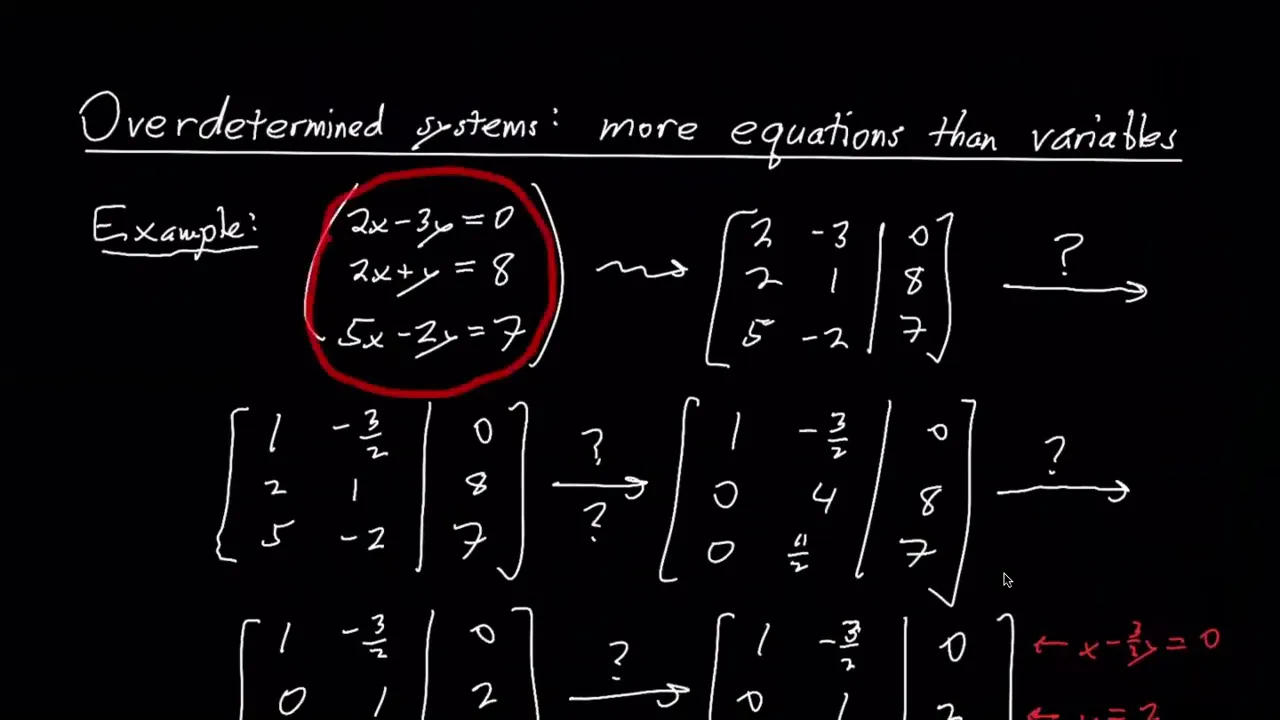 Overdetermined systems: more equations than variables
Example:
2x-3y=0
2x+y=8
5x-2y=7
2 -3 | 0
2 1 | 8
5 -2 | 7
?
1 -3/2 | 0
2 1 | 8
5 -2 | 7
?
?
1 -3/2 | 0
0 4 | 8
0 11/2 | 7
?
1 -3/2 | 0
0 1 | 2
?
1 -3/2 | 0
0 1 | 2
← x-3/2y=0
← y=2